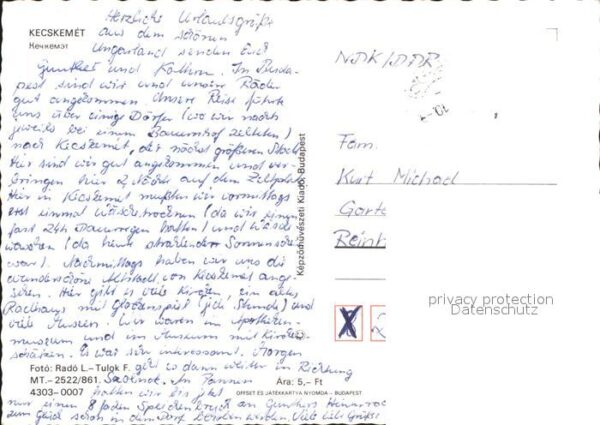 Herzliche Urlaubsgrüße
KECSKEMÉT
aus dem schönen
Кечкемэт
Ungarland senden Euch
Gunther und Kathrin. In Buda-
pest sind wir und unsere Räder
gut angekommen. Unsere Reise führte
uns über einige Dörfer (wo wir nachts
jeweils bei einem Bauernhof zelteten)
nach Kecskemét, der nächst größeren Stadt.
Hier sind wir gut angekommen und ver-
bringen hier 2 Nächte auf dem Zeltplatz.
Hier in Kecskemét mußten wir vormittags
erst einmal Wäsche trocknen (da wir einen
fast 24h Dauerregen hatten) und Wäsche
waschen (da heute strahlender Sonnenschein
war). Nachmittags haben wir uns die
wunderschöne Altstadt von Kecskemét ange-
sehen. Hier gibt es viele Kirchen, ein altes
Rathaus mit Glockenspiel (jede Stunde) und
viele Museen. Wir waren im Apotheken-
museum und im Museum mit Kirchen-
schätzen. Es war sehr interessant. Morgen
Fotó: Radó L.–Tulok F. geht es dann weiter in Richtung
MT.–2522/861. Szolnok. Im
Ára: 5,– Ft
4303–0007 hatten wir bis jetzt
OFFSET ÉS JÁTÉKKÁRTYA NYOMDA – BUDAPEST
nur einen 8 fachen Speichenbruch an Gunthers Hinterrad
zum Glück schon in dem Dorf Viele liebe Grüße
Képzőművészeti Kiadó, Budapest
NDK/DDR
Fam.
Kurt Michael
Garte
Reinh
X
2
privacy protection
Datenschutz